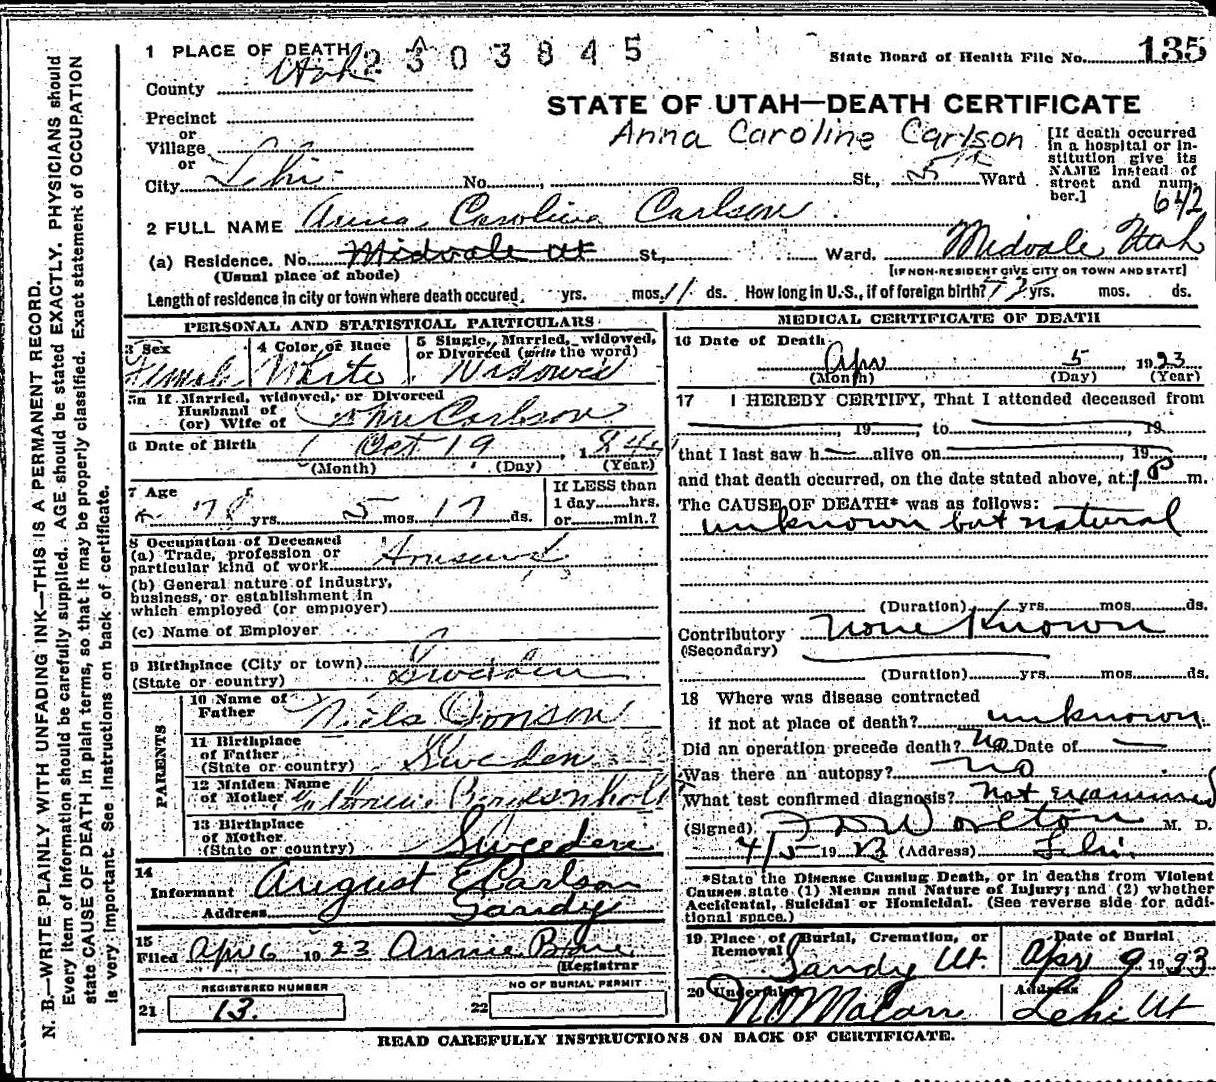 N. B.—WRITE PLAINLY WITH UNFADING INK—THIS IS A PERMANENT RECORD.
Every item of information should be carefully supplied. AGE should be stated EXACTLY. PHYSICIANS should
state CAUSE OF DEATH in plain terms, so that it may be properly classified. Exact statement of OCCUPATION
is very important. See instructions on back of certificate.
1 PLACE OF DEATH 2303845
State Board of Health File No. 135
County Utah
STATE OF UTAH—DEATH CERTIFICATE
Precinct
or
Village
or
Anna Caroline Carlson
[If death occurred
in a hospital or in-
stitution give its
NAME instead of
street and num-
ber.]
City Lehi No. , St., 5th Ward
642
2 FULL NAME Anna Carolina Carlson
(a) Residence. No. Midvale Ut St., Ward. Midvale Utah
(Usual place of abode) [IF NON-RESIDENT GIVE CITY OR TOWN AND STATE]
Length of residence in city or town where death occured, yrs. mos. 11 ds. How long in U.S., if of foreign birth? yrs. mos. ds.
PERSONAL AND STATISTICAL PARTICULARS
3 Sex
Female
4 Color or Race
White
5 Single, Married, widowed,
or Divorced (write the word)
Widowed
5a If Married, widowed, or Divorced
Husband of
(or) Wife of John Carlson
6 Date of Birth Oct 19, 1844
(Month) (Day) (Year)
7 Age
78 yrs. 5 mos. 17 ds.
If LESS than
1 day hrs.
or min.?
8 Occupation of Deceased
(a) Trade, profession or
particular kind of work
(b) General nature of industry,
business, or establishment in
which employed (or employer)
(c) Name of Employer
9 Birthplace (City or town)
(State or country) Sweden
PARENTS
10 Name of
Father Niels Jonson
11 Birthplace
of Father
(State or country) Sweden
12 Maiden Name
of Mother
13 Birthplace
of Mother
(State or country) Sweeden
14
Informant August E Carlson
Address Sandy
15
Filed Apr 6 1923 Annie
Registrar
REGISTERED NUMBER
21 13.
NO OF BURIAL PERMIT
22
MEDICAL CERTIFICATE OF DEATH
16 Date of Death
Apr 5 1923
(Month) (Day) (Year)
17 I HEREBY CERTIFY, That I attended deceased from
, 19 , to , 19
that I last saw h alive on , 19 ,
and that death occurred, on the date stated above, at m.
The CAUSE OF DEATH* was as follows:
unknown but natural
(Duration) yrs. mos. ds.
Contributory None Known
(Secondary)
(Duration) yrs. mos. ds.
18 Where was disease contracted
if not at place of death? unknown
Did an operation precede death? No Date of —
Was there an autopsy? no
What test confirmed diagnosis? Not examined
(Signed) F D Worlton M. D.
4/5 1923 (Address) Lehi.
*State the Disease Causing Death, or in deaths from Violent
Causes state (1) Means and Nature of Injury; and (2) whether
Accidental, Suicidal or Homicidal. (See reverse side for addi-
tional space.)
19 Place of Burial, Cremation, or
Removal
Sandy Ut.
Date of Burial
Apr 9 1923
20 Undertaker
Address
Lehi Ut
READ CAREFULLY INSTRUCTIONS ON BACK OF CERTIFICATE.